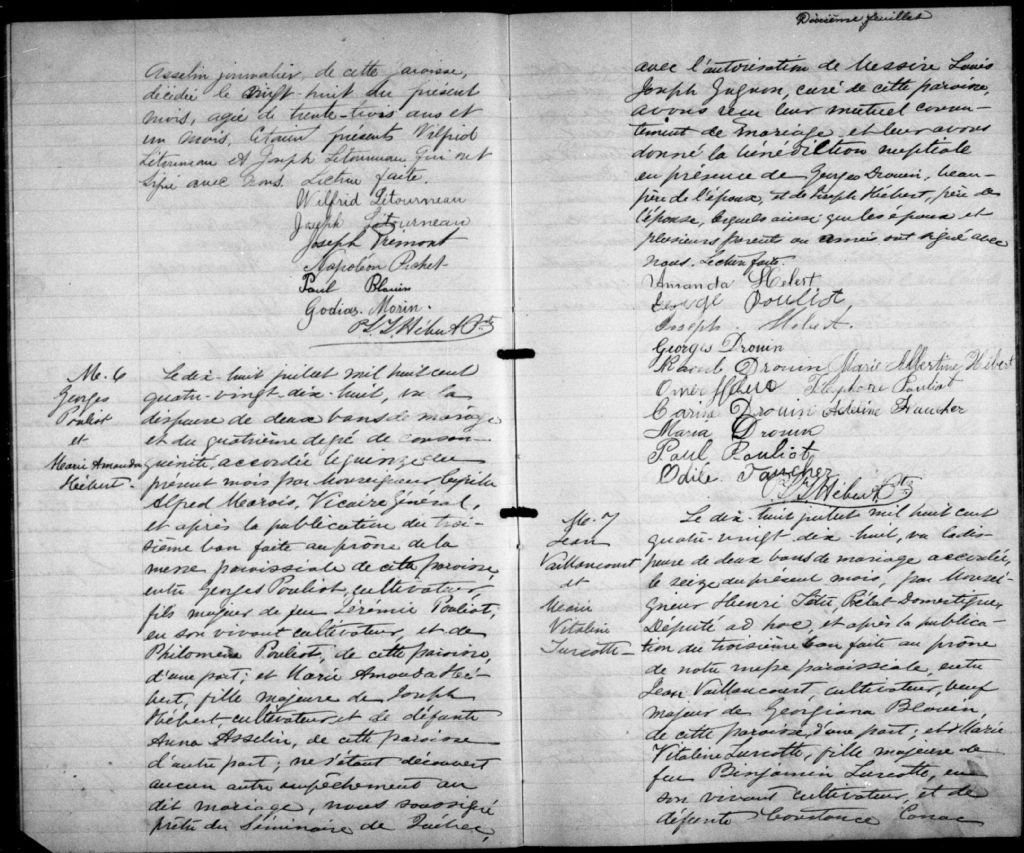 Asselin journalier, de cette paroisse,
décédée le vingt-huit du présent
mois, agée de trente-trois ans et
un mois. Etaient présents Wilfrid
Létourneau et Joseph Létourneau qui ont
signé avec nous. Lecture faite.
Wilfrid Létourneau
Joseph Létourneau
Joseph Prémont
Napoléon Pichet
Paul Blouin
Godias Morin.
Hébert Ptr
M. 6
Georges
Pouliot
et
Marie Amanda
Hébert.
Le dix-huit juillet mil huit cent
quatre-vingt dix-huit, vu la
dispense de deux bans de mariage
et du quatrième degré de consan-
guinité, accordée le quinze du
présent mois par Monseigneur Cyrille
Alfred Marois, Vicaire Général,
et après la publication du troi-
sième ban faite au prône de la
messe paroissiale de cette paroisse,
entre Georges Pouliot, cultivateur,
fils majeur de feu Jérémie Pouliot,
en son vivant cultivateur, et de
Philomène Pouliot, de cette paroisse,
d'une part; et Marie Amanda Hé-
bert, fille majeure de Joseph
Hébert, cultivateur, et de défunte
Anna Asselin, de cette paroisse
d'autre part; ne s'étant découvert
aucun autre empêchement au
dit mariage, nous soussigné
prêtre du Séminaire de Québec,
Dixième feuillet
avec l'autorisation de Messire Louis
Joseph Gagnon, curé de cette paroisse,
avons reçu leur mutuel consen-
tement de mariage et leur avons
donné la bénédiction nuptiale
en présence de Georges Drouin, beau-
père de l'époux, et de Joseph Hébert, père de
l'épouse, lesquels ainsi que les époux et
plusieurs parents ou amis ont signé avec
nous. Lecture faite.
Amanda Hébert
George Pouliot
Joseph Hébert.
Georges Drouin
Raoul Drouin Marie Albertine Hébert
Omer Télesphore Pouliot
Carina Drouin Antoine Faucher
Maria Drouin
Paul Pouliot
Odile Faucher
Hébert Ptr
M. 7
Jean
Vaillancourt
et
Marie
Vitaline
Turcotte
Le dix-huit juillet mil huit cent
quatre-vingt dix-huit, vu la dis-
pense de deux bans de mariage accordée,
le seize du présent mois, par Monsei-
gneur Henri Têtu, Prélat Domestique,
Député ad hoc, et après la publica-
tion du troisième ban faite au prône
de notre messe paroissiale, entre
Jean Vaillancourt, cultivateur, veuf
majeur de Georgiana Blouin,
de cette paroisse, d'une part; et Marie
Vitaline Turcotte, fille majeure de
feu Binjamin Turcotte, en
son vivant cultivateur, et de
défunte Constance Canac